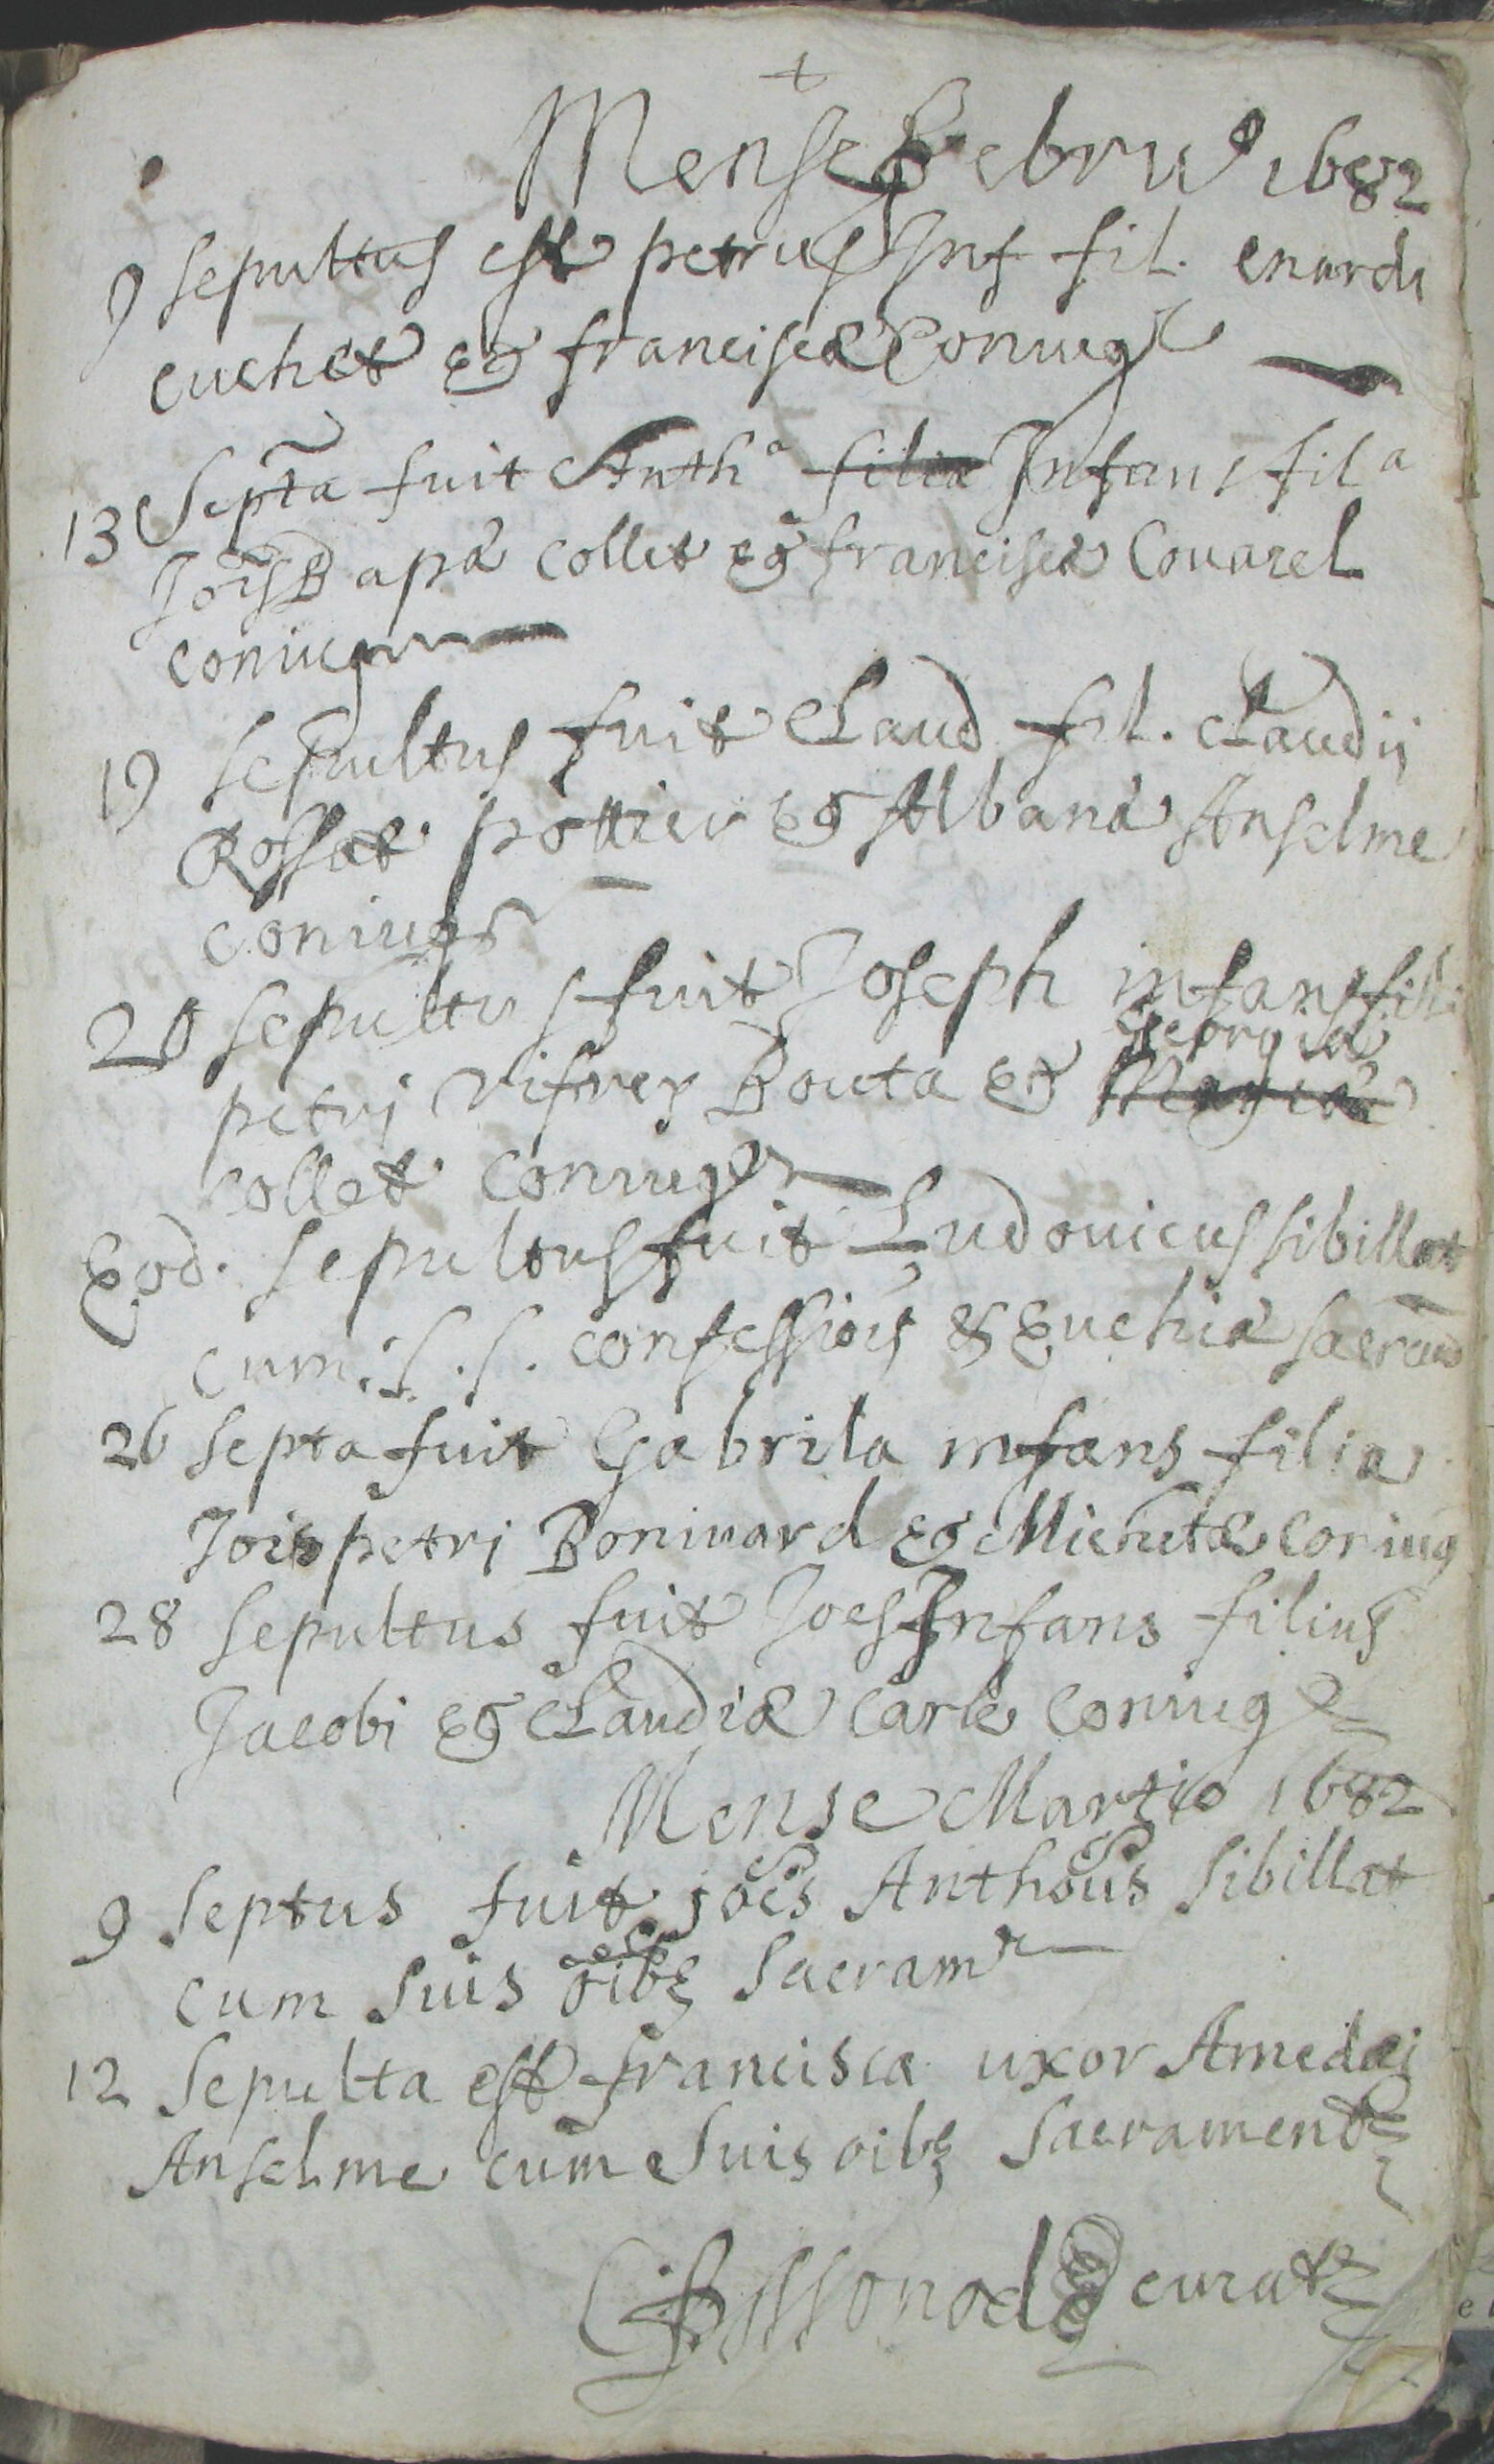 +
Mense Febru° 1682
9 sepultus est petrus Inf fil. enardi
cuchet et franciscæ Coniug
13 Septa fuit Anthª filia Infans filª
Jois Bapæ collet et franciscæ Couarel
coniugum
19 sepultus fuit Claud fil. Claudii
Rossat pottier et Albanæ Anselme
coniugs
20 sepultus fuit Joseph infans fili
Georgiæ
petri rifrey Bouta et
collet coniug
Eod. sepultus fuit Ludouicus sibillat
cum S. S. confessiois et Euchiæ sacram
26 septa fuit Gabrila infans filia
Jois petri Boniuard et Michetæ coniug
28 sepultus fuit Joes Infans filius
Jacobi et Claudiæ carle coniug
Mense Martio 1682
9 septus fuit joes Anthous sibillat
cum suis oibȝ sacramt
12 Sepulta est francisca uxor Amedæi
Anselme cum suis oibȝ sacrament
curat